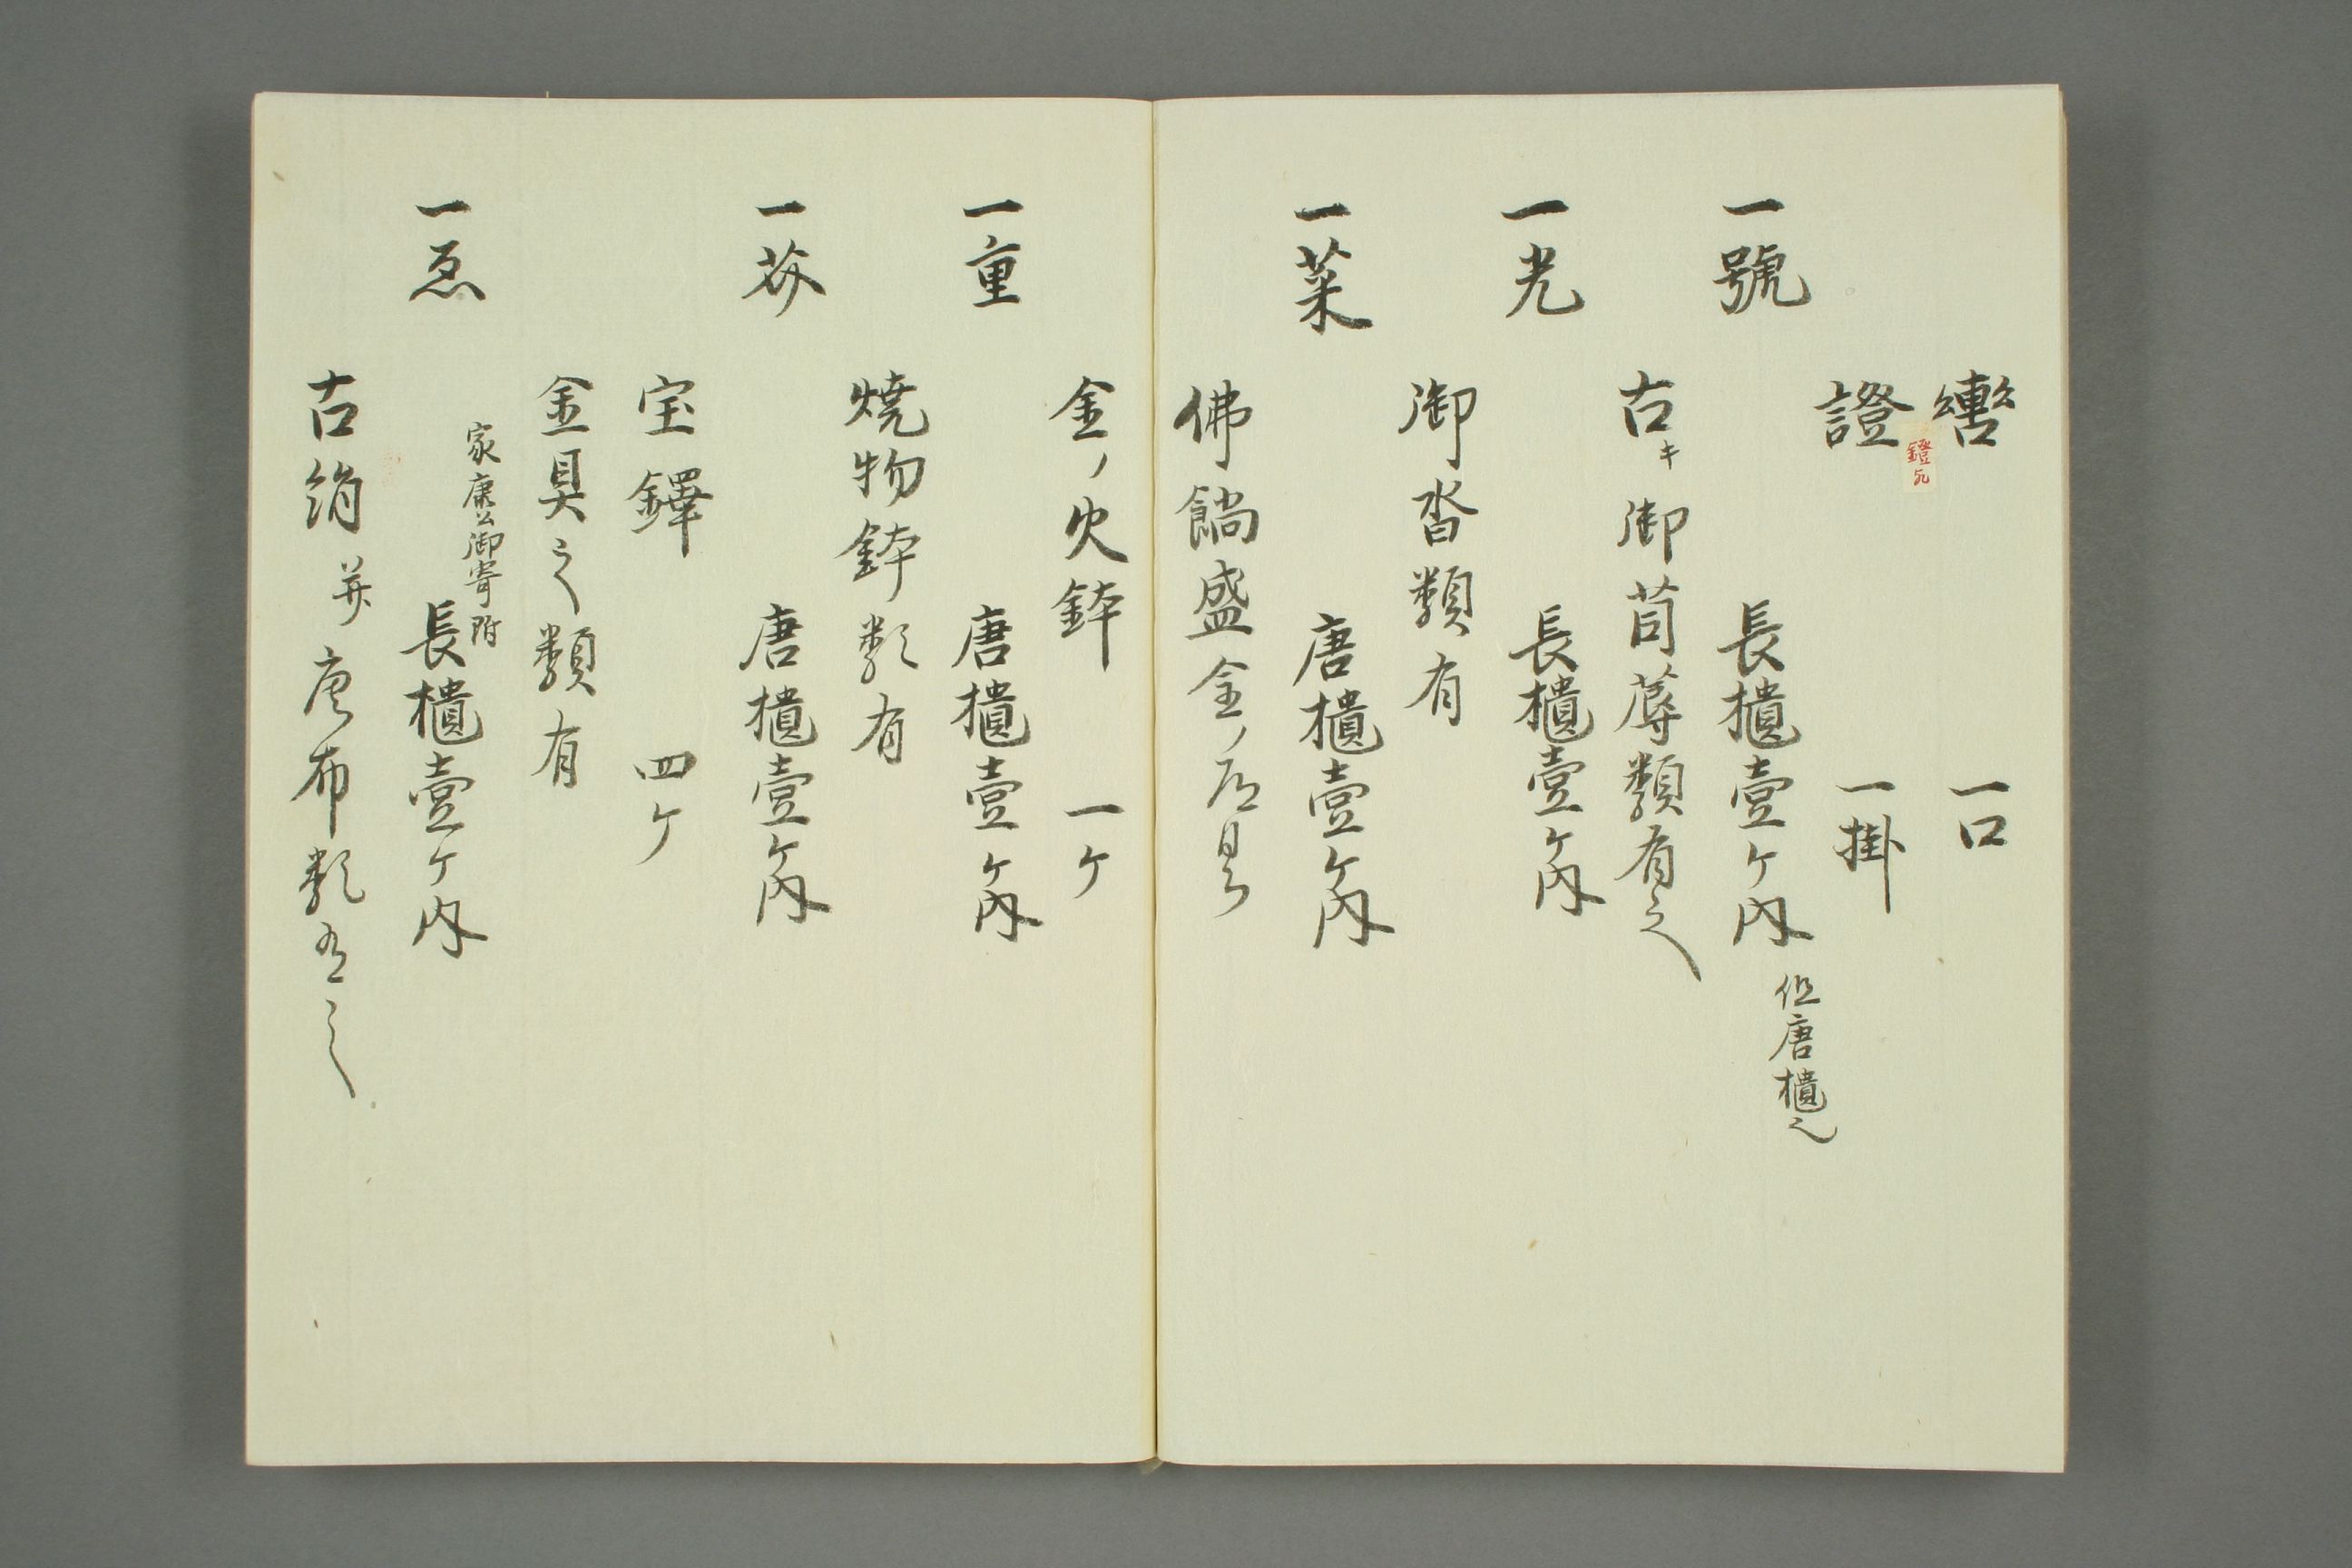 轡 一口
證 一掛
鐙
一號 長櫃壹ケ内 但唐櫃也
古キ御茵蓐類有之
一光 長櫃壹ケ内
御沓類有
一菜 唐櫃壹ケ内
佛餉盛金ノ
金ノ火鉢 一ケ
一重 唐櫃壹ケ内
焼物鉢類有
一芥 唐櫃壹ケ内
宝鐸 四ケ
金具之類有
家康公御寄附
一 長櫃壹ケ内
古絹并唐布類有之